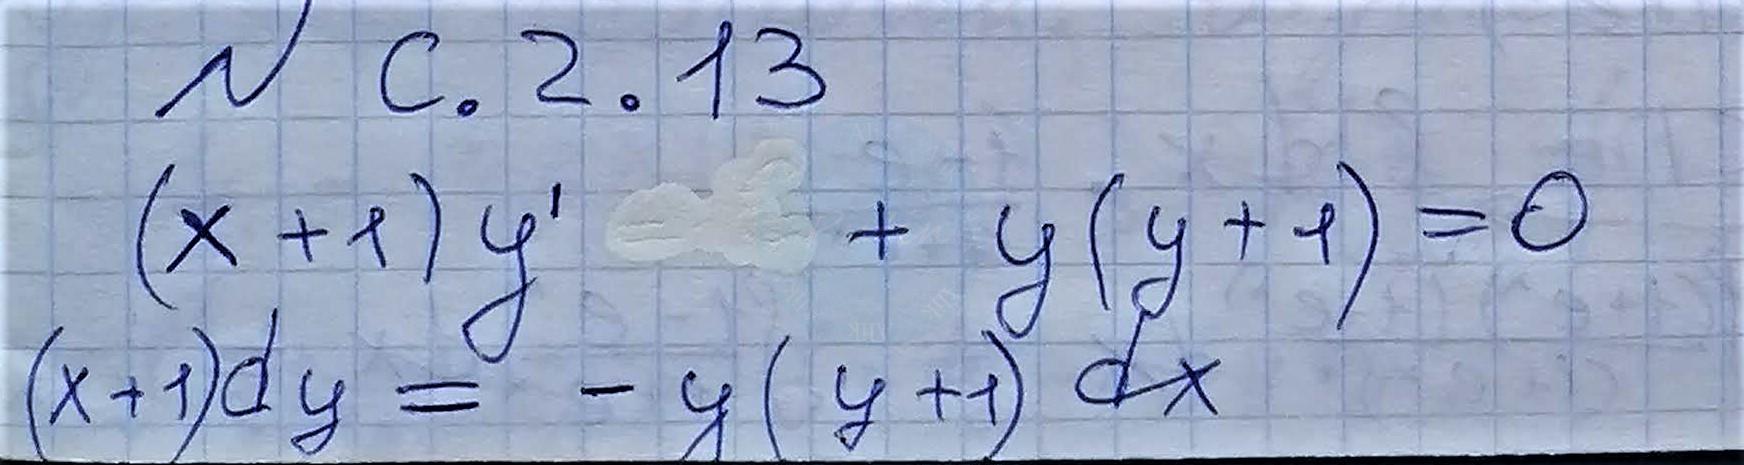 N C.2.13
(x+1)y' + y(y+1)=0
(x+1)dy = -y(y+1)dx